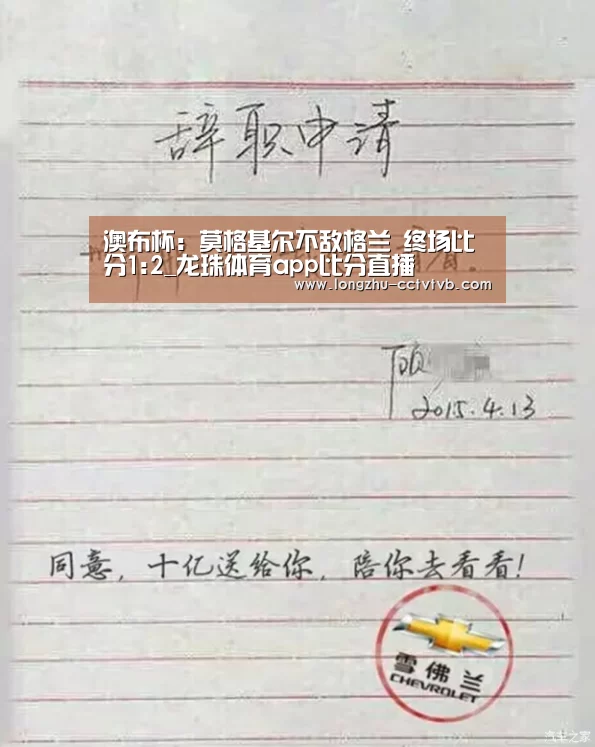 辞职申请
澳布杯：莫格基尔不敌格兰 终场比
分1:2_龙珠体育app比分直播
www.longzhu-cctvtvb.com
顾
2015.4.13
同意，十亿送给你，陪你去看看！
雪佛兰
CHEVROLET
汽车之家